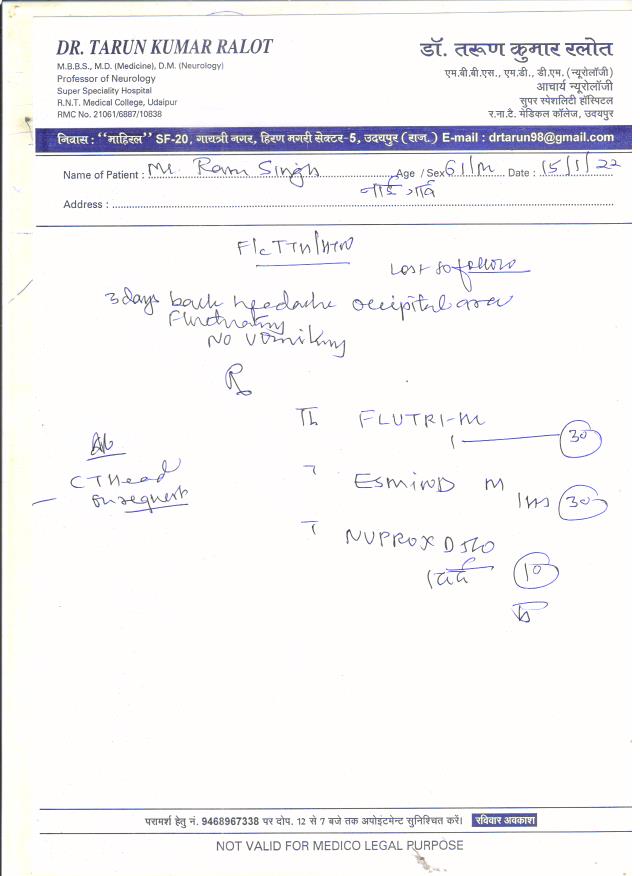 DR. TARUN KUMAR RALOT
M.B.B.S., M.D. (Medicine), D.M. (Neurology)
Professor of Neurology
Super Speciality Hospital
R.N.T. Medical College, Udaipur
RMC No. 21061/6887/10838
डॉ. तरूण कुमार रलोत
एम.बी.बी.एस., एम.डी., डी.एम. (न्यूरोलॉजी)
आचार्य न्यूरोलॉजी
सुपर स्पेशलिटी हॉस्पिटल
र.ना.टै. मेडिकल कॉलेज, उदयपुर
निवास : "माहिरल" SF-20, गायत्री नगर, हिरण मगरी सेक्टर-5, उदयपुर (राज.) E-mail : drtarun98@gmail.com
Name of Patient : Mr. Ram Singh Age / Sex 61/M Date : 15/1/22
Address :
Lost to follow
3 days back headache occipital area
Fluctuating
No vomiting
Rx
FLUTRI-M
1 30
CT Head
on request
M
30
NUPROX D 
10
परामर्श हेतु नं. 9468967338 पर दोप. 12 से 7 बजे तक अपोइंटमेन्ट सुनिश्चित करें। रविवार अवकाश
NOT VALID FOR MEDICO LEGAL PURPOSE